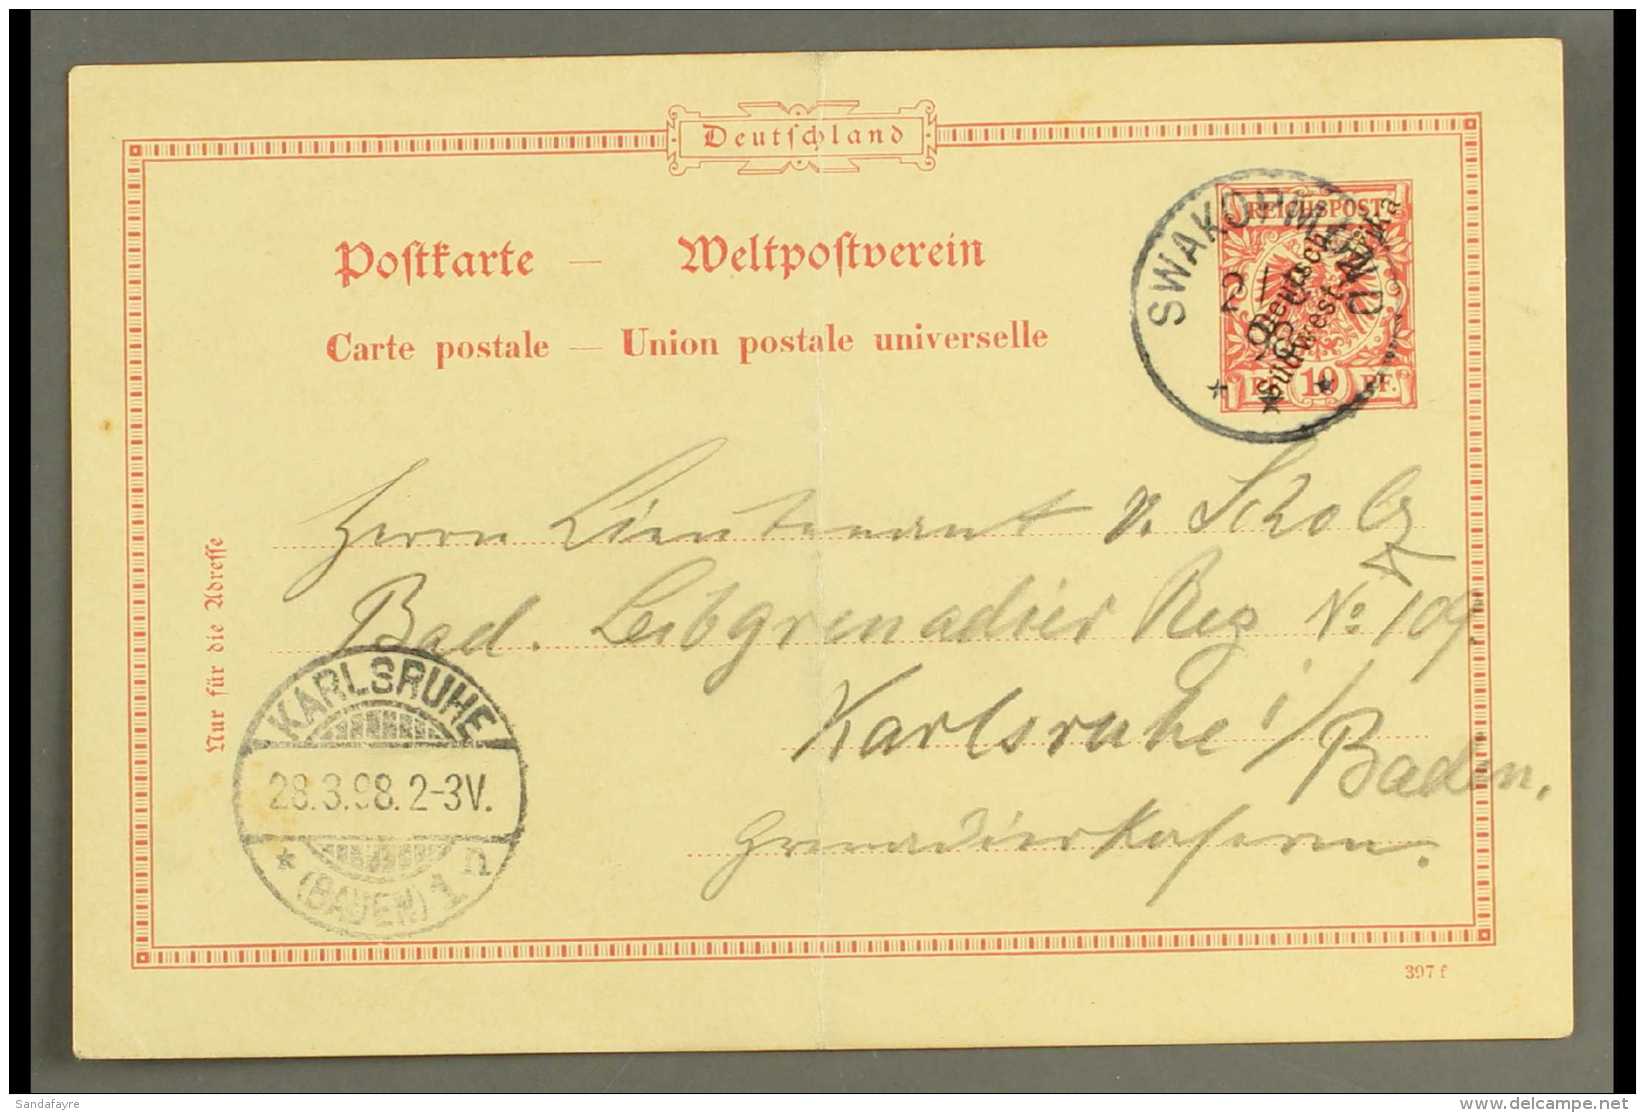 Deutschland
Postkarte — Weltpostverein
Carte postale — Union postale universelle
REICHSPOST
PF. 10 PF.
Deutsch-
Südwest-
SWAKOPMUND
2/
98
Herrn Lieutenant v. Scholz
Bad. Leibgrenadier Reg No 109
Karlsruhe i/Baden.
Grenadierkaserne.
Nur für die Adresse
KARLSRUHE
28.3.98.2-3V.
(BADEN) 1 n
397 f
Sandafayre